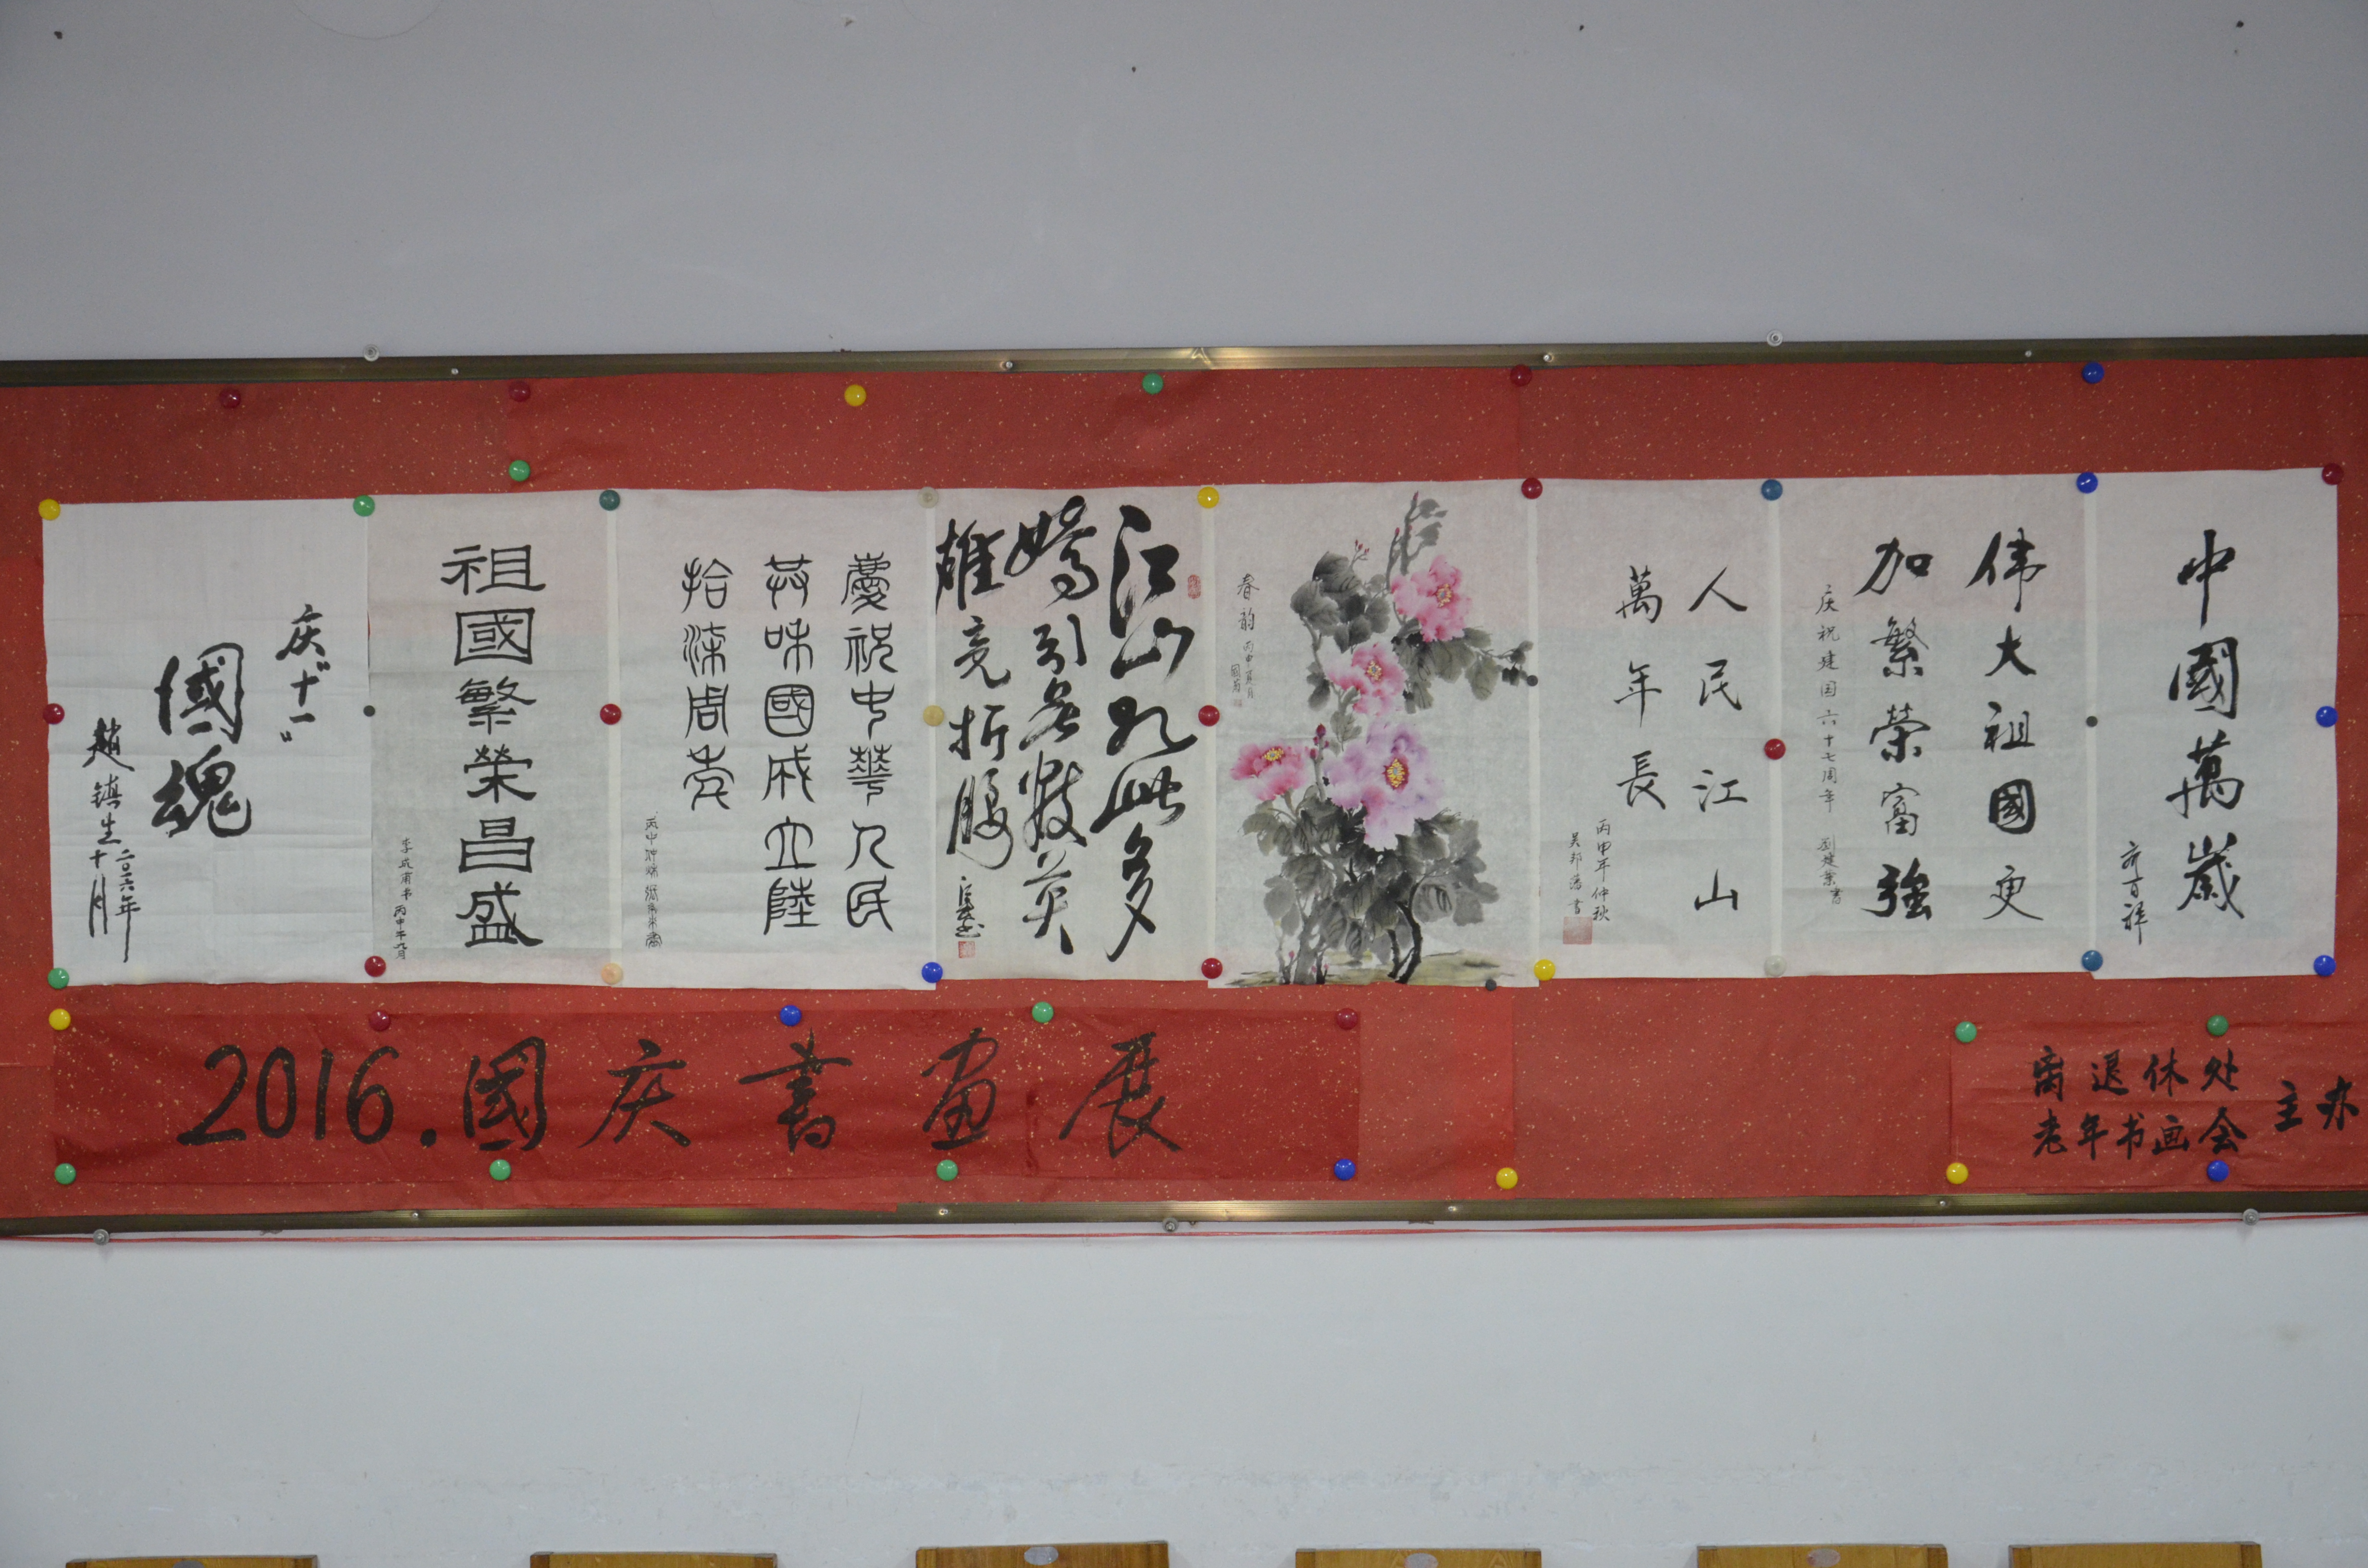 庆"十一"
國魂
趙镇生
二〇一六年
十月
祖國繁榮昌盛
丙申年九月
慶祝中華人民
共咊國成立陸
拾柒周年
江山如此多
嬌引无數英
雄竞折腰
春韵
丙申夏月
人民江山
萬年長
丙申年仲秋
伟大祖國更
加繁榮富強
庆祝建国六十七周年 劉建業書
中國萬歲
齐百祥
2016.國庆書画展
离退休处
老年书画会
主办